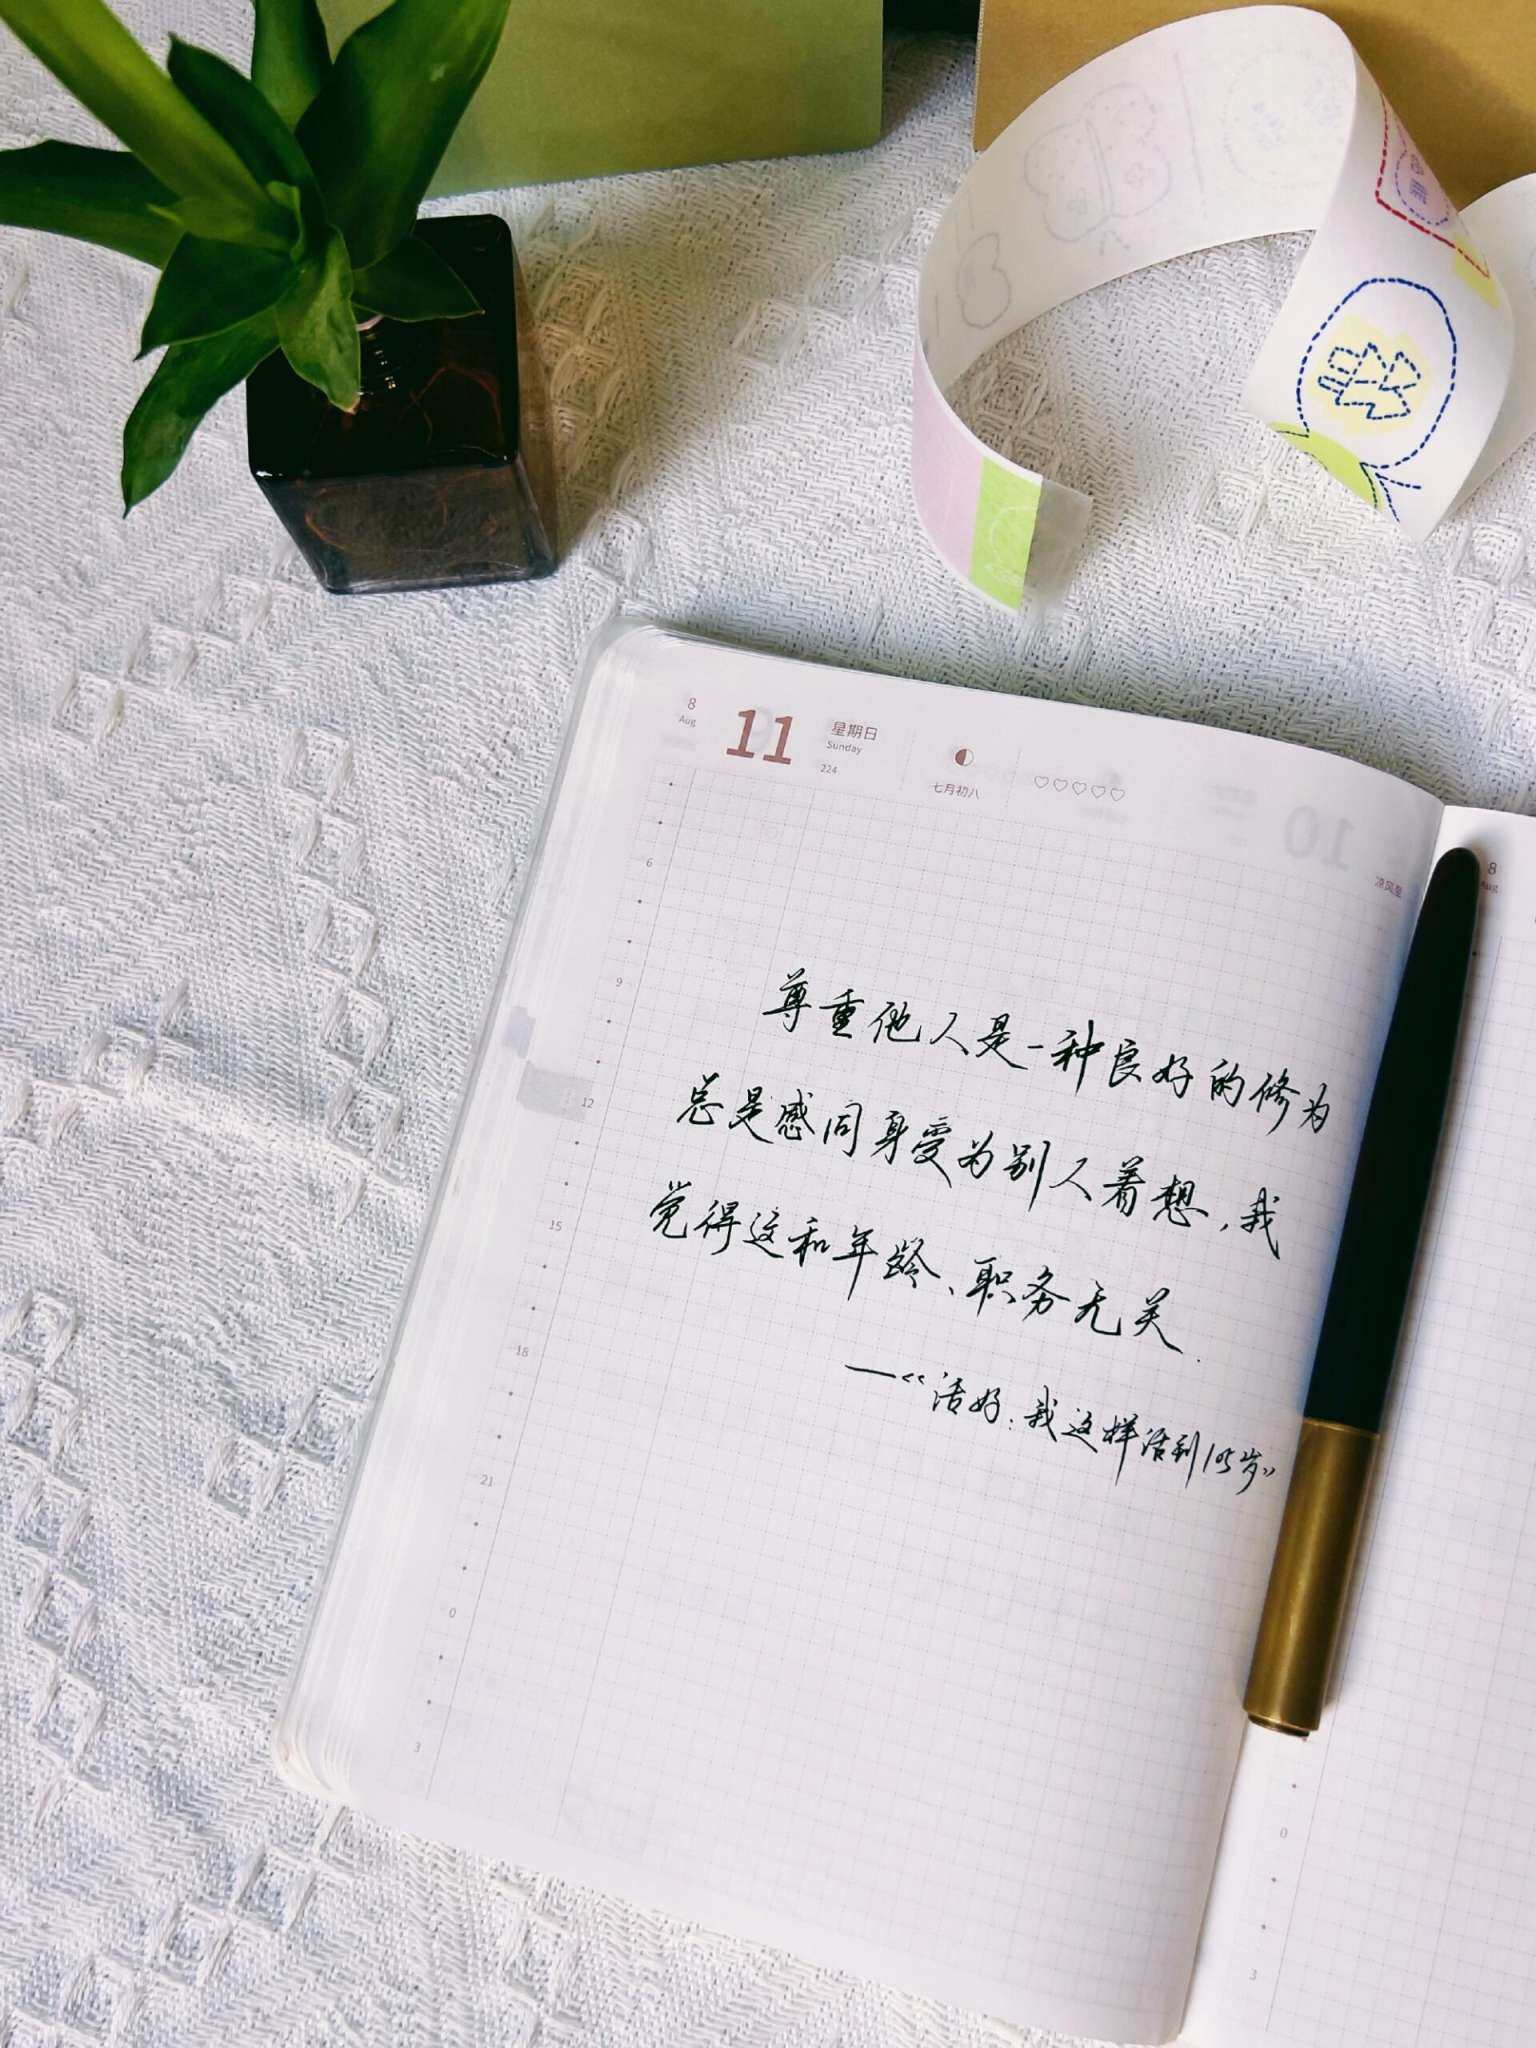 8
Aug
11
星期日
Sunday
224
七月初八
凉风至
8
Aug
6
9
12
15
18
21
0
3
尊重他人是一种良好的修为
总是感同身受为别人着想，我
觉得这和年龄、职务无关.
—《活好:我这样活到105岁》
0
3